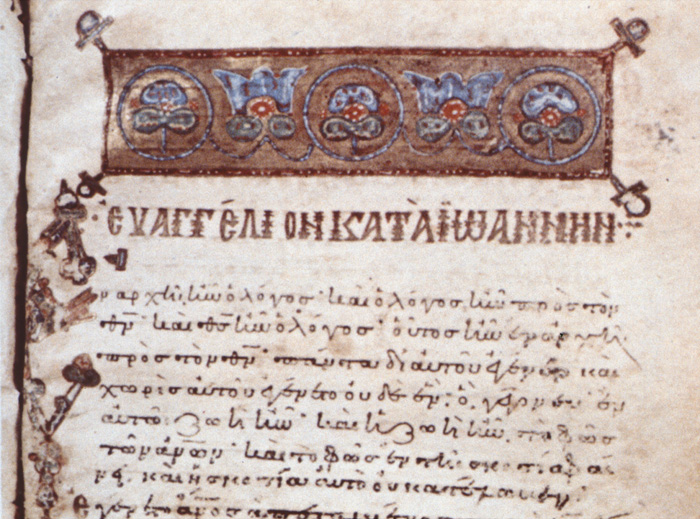 ΕΥΑΓΓΕΛΙΟΝ ΚΑΤΑ ΪΩΑΝΝΗΝ
ν ἀρχῆ ἦν ὁ λόγος· καὶ ὁ λόγος ἦν πρὸς τὸν
θν· καὶ θς ἦν ὁ λόγος· οὗτος ἦν ἐν ἀρχῆ
πρὸς τὸν θν· πάντα δι αὐτοῦ ἐγένετο καὶ
χωρὶς αὐτοῦ ἐγένετο οὐδὲ ἕν· ὃ γέγονεν ἐν
αὐτῶ ζωὴ ἦν· καὶ ἡ ζωὴ ἦν τὸ φῶς
τῶν ἀνων· καὶ τὸ φῶς ἐν τῆ σκοτία φαί
νει· καὶ ἡ σκοτία αὐτὸ οὐ κατέλαβεν·
ἐγένετο ἀνος